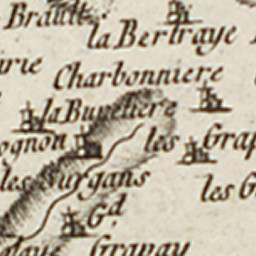 Brault
la Bertraye
Charbonniere
la Buretiere
ognon
les Grap
les Gurgans
les G
Gd
Gravay